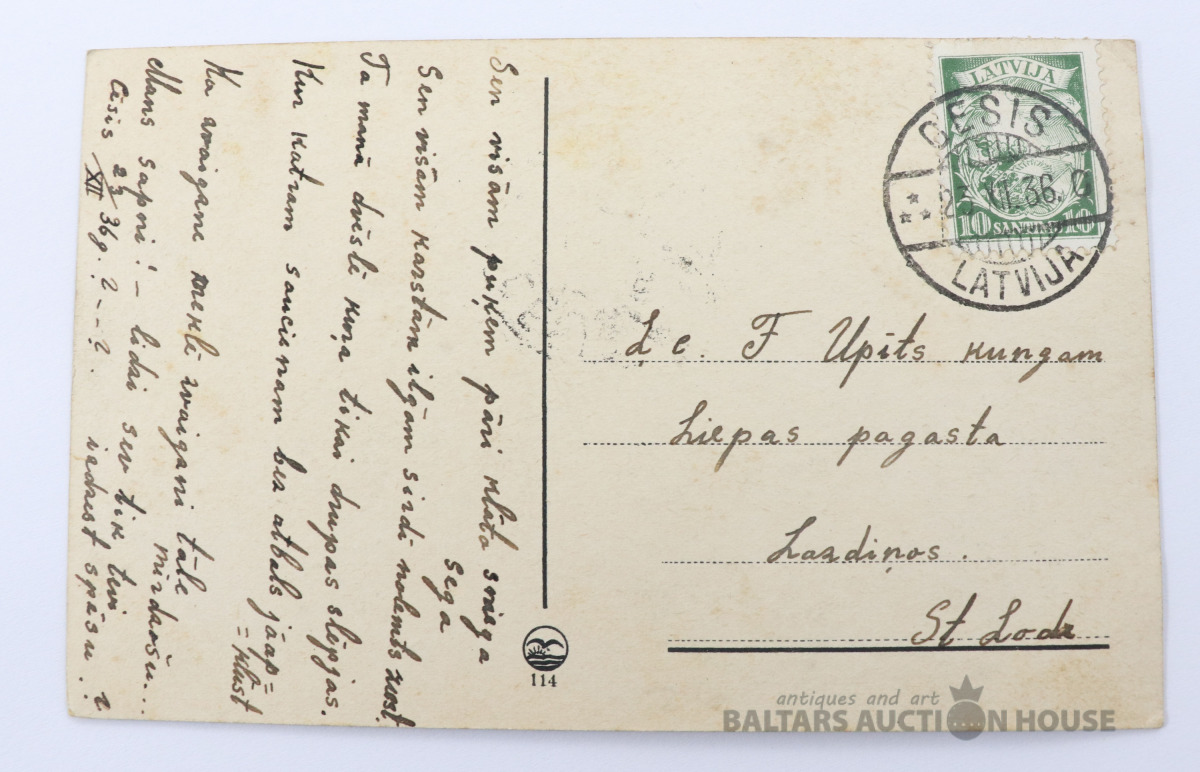 Sen visām puķem pāri klāta sniega
sega
Sen visām karstām ilgām sirdi nolemts zust.
Ta manā dvēslē kuŗa tikai drupas slejgas.
Kur katram saucienam bez atbals jāap=
=klust
Ka vaigane mekli vaigani tāle
mirdavšu...
Mans sapni! - lidai sev tik tevi
Cēsis 23/XII 36g. ? - - ? izdzest spāsu. ?
LATVIJA
10 SANTIMU 10
CESIS
23.XII.36. C
LATVIJA
L c. F Upīts kungam
Liepas pagasta
Lazdiņos.
St Lode
114
antiques and art
BALTARS AUCTION HOUSE